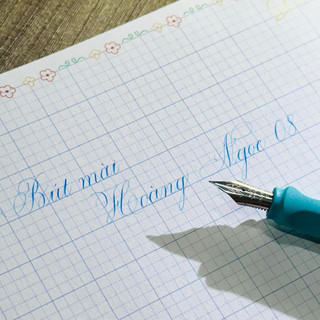 Bút mài
Hoàng Ngọc 08